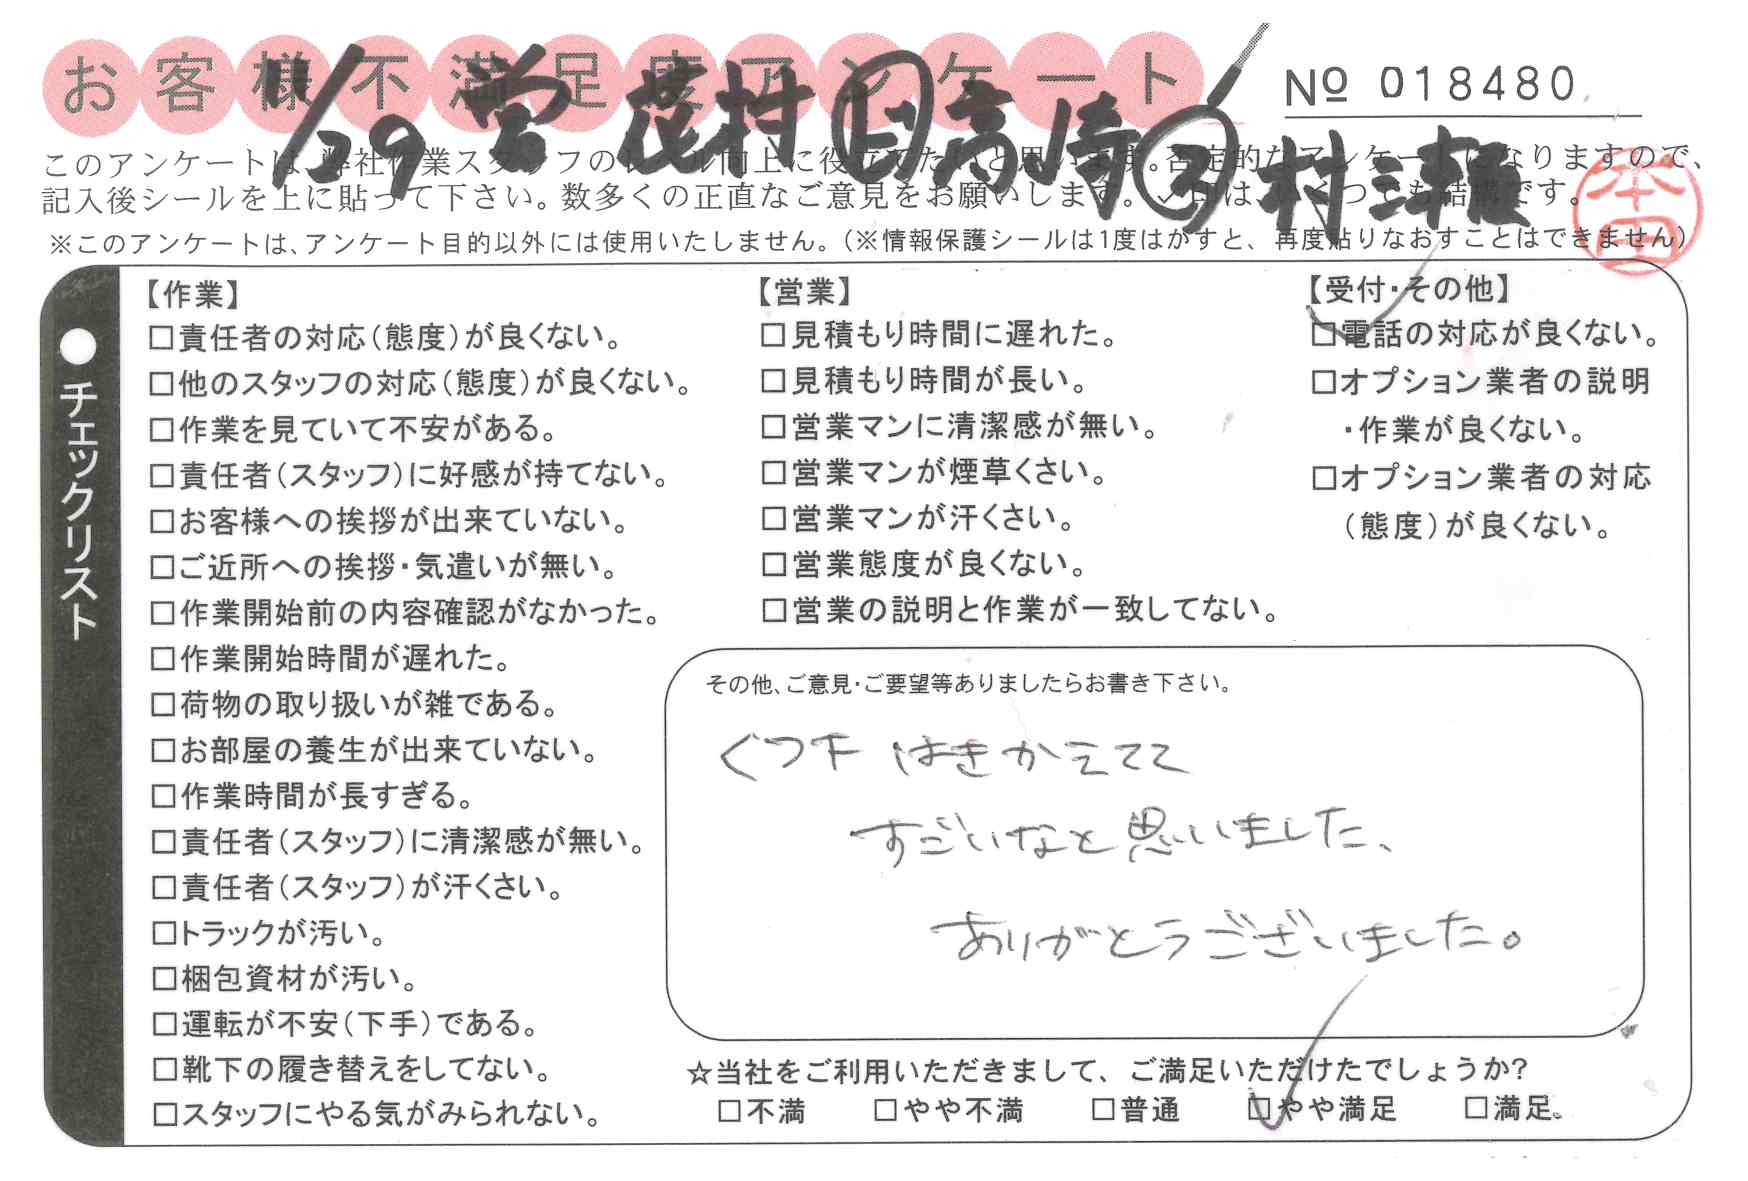 お客様不満足度アンケート
№ 018480
11/29 営 茂村 ㊤高崎 ㋙村 三報
このアンケートは、弊社作業スタッフのレベル向上に役立てたいと思います。否定的なアンケートになりますので、
記入後シールを上に貼って下さい。数多くの正直なご意見をお願いします。✓印は、いくつでも結構です。
本田
※このアンケートは、アンケート目的以外には使用いたしません。(※情報保護シールは1度はがすと、再度貼りなおすことはできません)
●チェックリスト
【作業】
□責任者の対応(態度)が良くない。
□他のスタッフの対応(態度)が良くない。
□作業を見ていて不安がある。
□責任者(スタッフ)に好感が持てない。
□お客様への挨拶が出来ていない。
□ご近所への挨拶・気遣いが無い。
□作業開始前の内容確認がなかった。
□作業開始時間が遅れた。
□荷物の取り扱いが雑である。
□お部屋の養生が出来ていない。
□作業時間が長すぎる。
□責任者(スタッフ)に清潔感が無い。
□責任者(スタッフ)が汗くさい。
□トラックが汚い。
□梱包資材が汚い。
□運転が不安(下手)である。
□靴下の履き替えをしてない。
□スタッフにやる気がみられない。
【営業】
□見積もり時間に遅れた。
□見積もり時間が長い。
□営業マンに清潔感が無い。
□営業マンが煙草くさい。
□営業マンが汗くさい。
□営業態度が良くない。
□営業の説明と作業が一致してない。
【受付・その他】
☑電話の対応が良くない。
□オプション業者の説明
・作業が良くない。
□オプション業者の対応
(態度)が良くない。
その他、ご意見・ご要望等ありましたらお書き下さい。
くつ下 はきかえてて
すごいなと思いました、
ありがとうございました。
☆当社をご利用いただきまして、ご満足いただけたでしょうか?
□不満 □やや不満 □普通 ☑やや満足 □満足